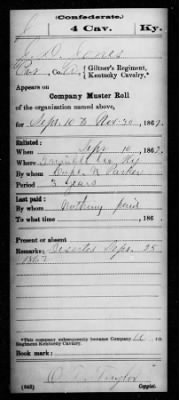 (Confederate.)
J 4 Cav. Ky.
G. D. Jones
Pvt, Co. A, Giltner's Regiment,
Kentucky Cavalry,*
Appears on
Company Muster Roll
of the organization named above,
for Sept. 10 to Nov. 30, 1862.
Enlisted:
When Sept 10, 1862
Where Trimble Co, Ky
By whom Capt. Parker
Period 3 years
Last paid:
By whom Nothing paid
To what time , 186 .
Present or absent
Remarks: Deserted Sept. 25
1862
*This company subsequently became Company , 4th
Regiment Kentucky Cavalry.
Book mark:
Taylor
(642) Copyist.